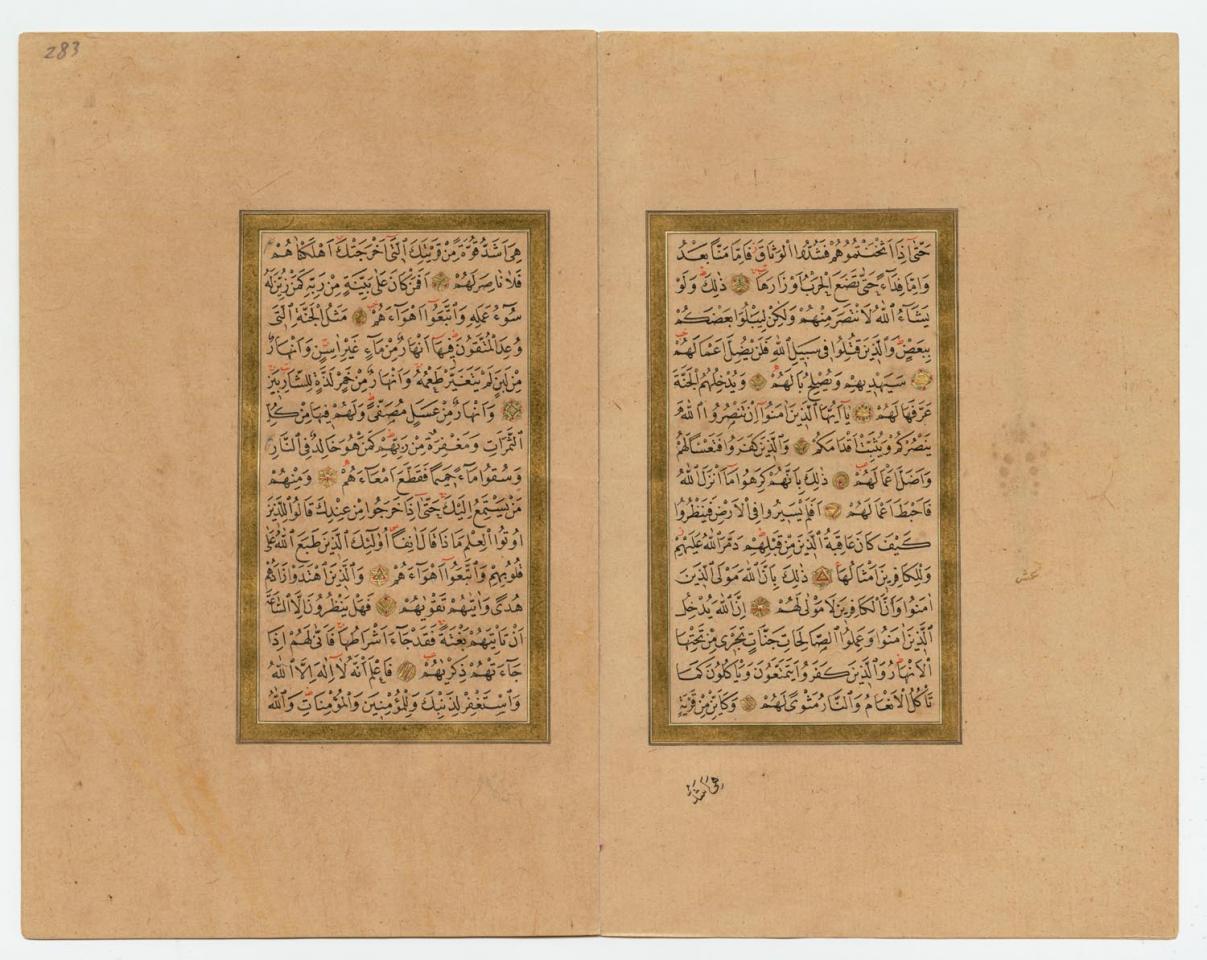 حَتّٰى اِذَا اَثْخَنْتُمُوهُمْ فَشُدُّوا الْوَثَاقَ فَاِمَّا مَنًّا بَعْدُ
وَاِمَّا فِدَٓاءً حَتّٰى تَضَعَ الْحَرْبُ اَوْزَارَهَا ذٰلِكَ وَلَوْ
يَشَٓاءُ اللّٰهُ لَانْتَصَرَ مِنْهُمْ وَلٰكِنْ لِيَبْلُوَا بَعْضَكُمْ
بِبَعْضٍ وَالَّذِينَ قُتِلُوا فِى سَبِيلِ اللّٰهِ فَلَنْ يُضِلَّ اَعْمَالَهُمْ
سَيَهْدِيهِمْ وَيُصْلِحُ بَالَهُمْ وَيُدْخِلُهُمُ الْجَنَّةَ
عَرَّفَهَا لَهُمْ يَٓا اَيُّهَا الَّذِينَ اٰمَنُٓوا اِنْ تَنْصُرُوا اللّٰهَ
يَنْصُرْكُمْ وَيُثَبِّتْ اَقْدَامَكُمْ وَالَّذِينَ كَفَرُوا فَتَعْسًا لَهُمْ
وَاَضَلَّ اَعْمَالَهُمْ ذٰلِكَ بِاَنَّهُمْ كَرِهُوا مَٓا اَنْزَلَ اللّٰهُ
فَاَحْبَطَ اَعْمَالَهُمْ اَفَلَمْ يَسِيرُوا فِى الْاَرْضِ فَيَنْظُرُوا
كَيْفَ كَانَ عَاقِبَةُ الَّذِينَ مِنْ قَبْلِهِمْ دَمَّرَ اللّٰهُ عَلَيْهِمْ
وَلِلْكَافِرِينَ اَمْثَالُهَا ذٰلِكَ بِاَنَّ اللّٰهَ مَوْلَى الَّذِينَ
اٰمَنُوا وَاَنَّ الْكَافِرِينَ لَا مَوْلٰى لَهُمْ اِنَّ اللّٰهَ يُدْخِلُ
الَّذِينَ اٰمَنُوا وَعَمِلُوا الصَّالِحَاتِ جَنَّاتٍ تَجْرِى مِنْ تَحْتِهَا
الْاَنْهَارُ وَالَّذِينَ كَفَرُوا يَتَمَتَّعُونَ وَيَاْكُلُونَ كَمَا
تَاْكُلُ الْاَنْعَامُ وَالنَّارُ مَثْوًى لَهُمْ وَكَاَيِّنْ مِنْ قَرْيَةٍ
هِىَ اَشَدُّ
283
هِىَ اَشَدُّ قُوَّةً مِنْ قَرْيَتِكَ الَّتِٓى اَخْرَجَتْكَ اَهْلَكْنَاهُمْ
فَلَا نَاصِرَ لَهُمْ اَفَمَنْ كَانَ عَلٰى بَيِّنَةٍ مِنْ رَبِّهِ كَمَنْ زُيِّنَ لَهُ
سُٓوءُ عَمَلِهِ وَاتَّبَعُٓوا اَهْوَٓاءَهُمْ مَثَلُ الْجَنَّةِ الَّتِى
وُعِدَ الْمُتَّقُونَ فِيهَٓا اَنْهَارٌ مِنْ مَٓاءٍ غَيْرِ اٰسِنٍ وَاَنْهَارٌ
مِنْ لَبَنٍ لَمْ يَتَغَيَّرْ طَعْمُهُ وَاَنْهَارٌ مِنْ خَمْرٍ لَذَّةٍ لِلشَّارِبِينَ
وَاَنْهَارٌ مِنْ عَسَلٍ مُصَفًّى وَلَهُمْ فِيهَا مِنْ كُلِّ
الثَّمَرَاتِ وَمَغْفِرَةٌ مِنْ رَبِّهِمْ كَمَنْ هُوَ خَالِدٌ فِى النَّارِ
وَسُقُوا مَٓاءً حَمِيمًا فَقَطَّعَ اَمْعَٓاءَهُمْ وَمِنْهُمْ
مَنْ يَسْتَمِعُ اِلَيْكَ حَتّٰٓى اِذَا خَرَجُوا مِنْ عِنْدِكَ قَالُوا لِلَّذِينَ
اُوتُوا الْعِلْمَ مَاذَا قَالَ اٰنِفًا اُولٰٓئِكَ الَّذِينَ طَبَعَ اللّٰهُ عَلٰى
قُلُوبِهِمْ وَاتَّبَعُٓوا اَهْوَٓاءَهُمْ وَالَّذِينَ اهْتَدَوْا زَادَهُمْ
هُدًى وَاٰتٰيهُمْ تَقْوٰيهُمْ فَهَلْ يَنْظُرُونَ اِلَّا السَّاعَةَ
اَنْ تَاْتِيَهُمْ بَغْتَةً فَقَدْ جَٓاءَ اَشْرَاطُهَا فَاَنّٰى لَهُمْ اِذَا
جَٓاءَتْهُمْ ذِكْرٰيهُمْ فَاعْلَمْ اَنَّهُ لَٓا اِلٰهَ اِلَّا اللّٰهُ
وَاسْتَغْفِرْ لِذَنْبِكَ وَلِلْمُؤْمِنِينَ وَالْمُؤْمِنَاتِ وَاللّٰهُ